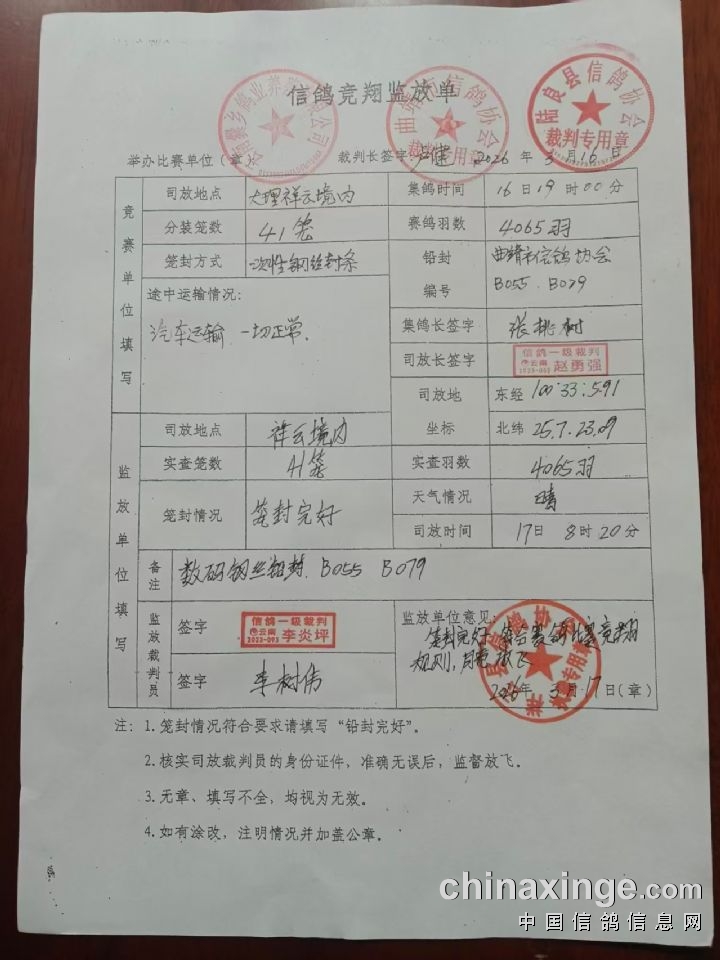 信鸽竞翔监放单
陆良县信鸽协会
裁判专用章
信鸽协会
裁判专用章
举办比赛单位（章） 裁判长签字: 2026 年 3 月 16 日
竞赛单位填写
司放地点 大理祥云境内 集鸽时间 16日19时00分
分装笼数 41笼 赛鸽羽数 4065羽
笼封方式 一次性钢丝封条 铅封编号 曲靖市信鸽协会
B055 B079
途中运输情况:
汽车运输 一切正常.
集鸽长签字 张桃树
司放长签字 信鸽一级裁判
云南 赵勇强
司放地坐标 东经 100:33:591
北纬 25.7.23.09
监放单位填写
司放地点 祥云境内
实查笼数 41笼 实查羽数 4065羽
笼封情况 笼封完好 天气情况 晴
司放时间 17日 8时20分
备注 数码钢丝铅封. B055 B079
监放裁判员
签字 信鸽一级裁判
云南 李炎坪
签字 李树伟
监放单位意见:
笼封完好 符合 竞翔
规则,同意放飞
2026年 3月17日(章)
裁判专用章
注: 1.笼封情况符合要求请填写“铅封完好”。
2.核实司放裁判员的身份证件，准确无误后，监督放飞。
3.无章、填写不全，均视为无效。
4.如有涂改，注明情况并加盖公章。
chinaxinge.com
中国信鸽信息网